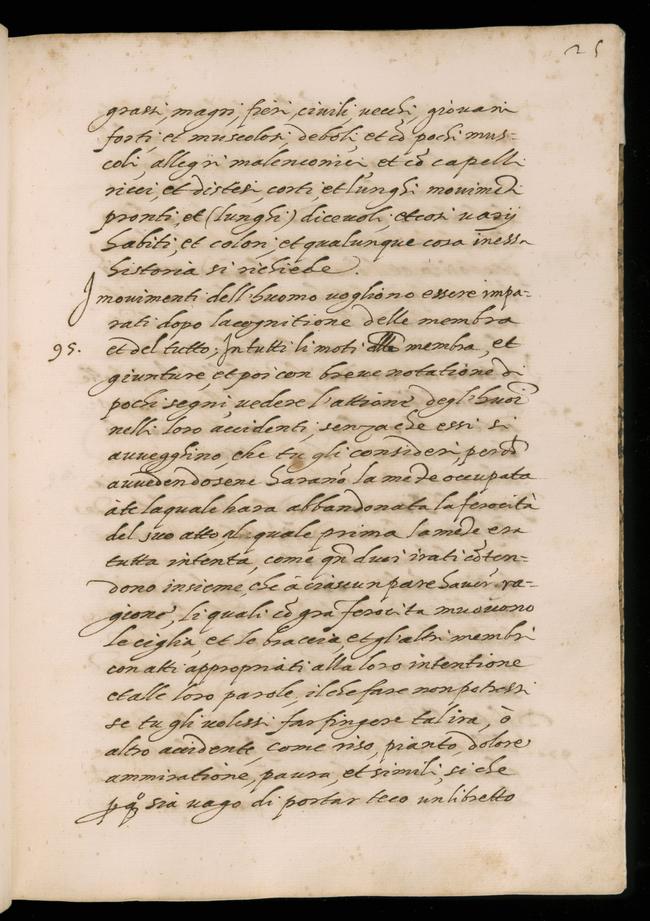 25
grassi, magri, fieri, civili, vecchi, giovani
forti et muscolosi deboli, et cõ pochi mus-
coli, allegri malenconici, et cõ capelli
ricci, et distesi, corti, et lunghi movimẽti
pronti, et (lunghi) dicevoli, et cosi varij
habiti, et colori, et qualunque cosa inessa
historia si richiede.
I movimenti dell'huomo vogliono essere impa-
rati dopo la cognitione delle membra
95. et del tutto; In tutti li moti membra, et
giunture, et poi con breve notatione di
pochi segni, vedere l'attioni degl'huoĩ
nelli loro accidenti, senza che essi si
avvegghino, che tu gli consideri, perchè
avvedendosene haranõ la mẽte occupata
à te, la quale harà abbandonata la ferocità
del suo atto, al quale prima la mẽte era
tutta intenta, come qñ duoi irati cõten-
dono insieme, che à ciascun pare haver ra-
gione, li quali cõ grã ferocita muovono
le ciglia, et le braccia, et gl'altri membri
con atti appropriati alla loro intentione
et alle loro parole, il che fare non potressi
se tu gli volessi far fingere tal ira, ò
altro accidente, come riso, pianto, dolore
ammiratione, paura, et simili, si che
sia vago di portar teco un libretto